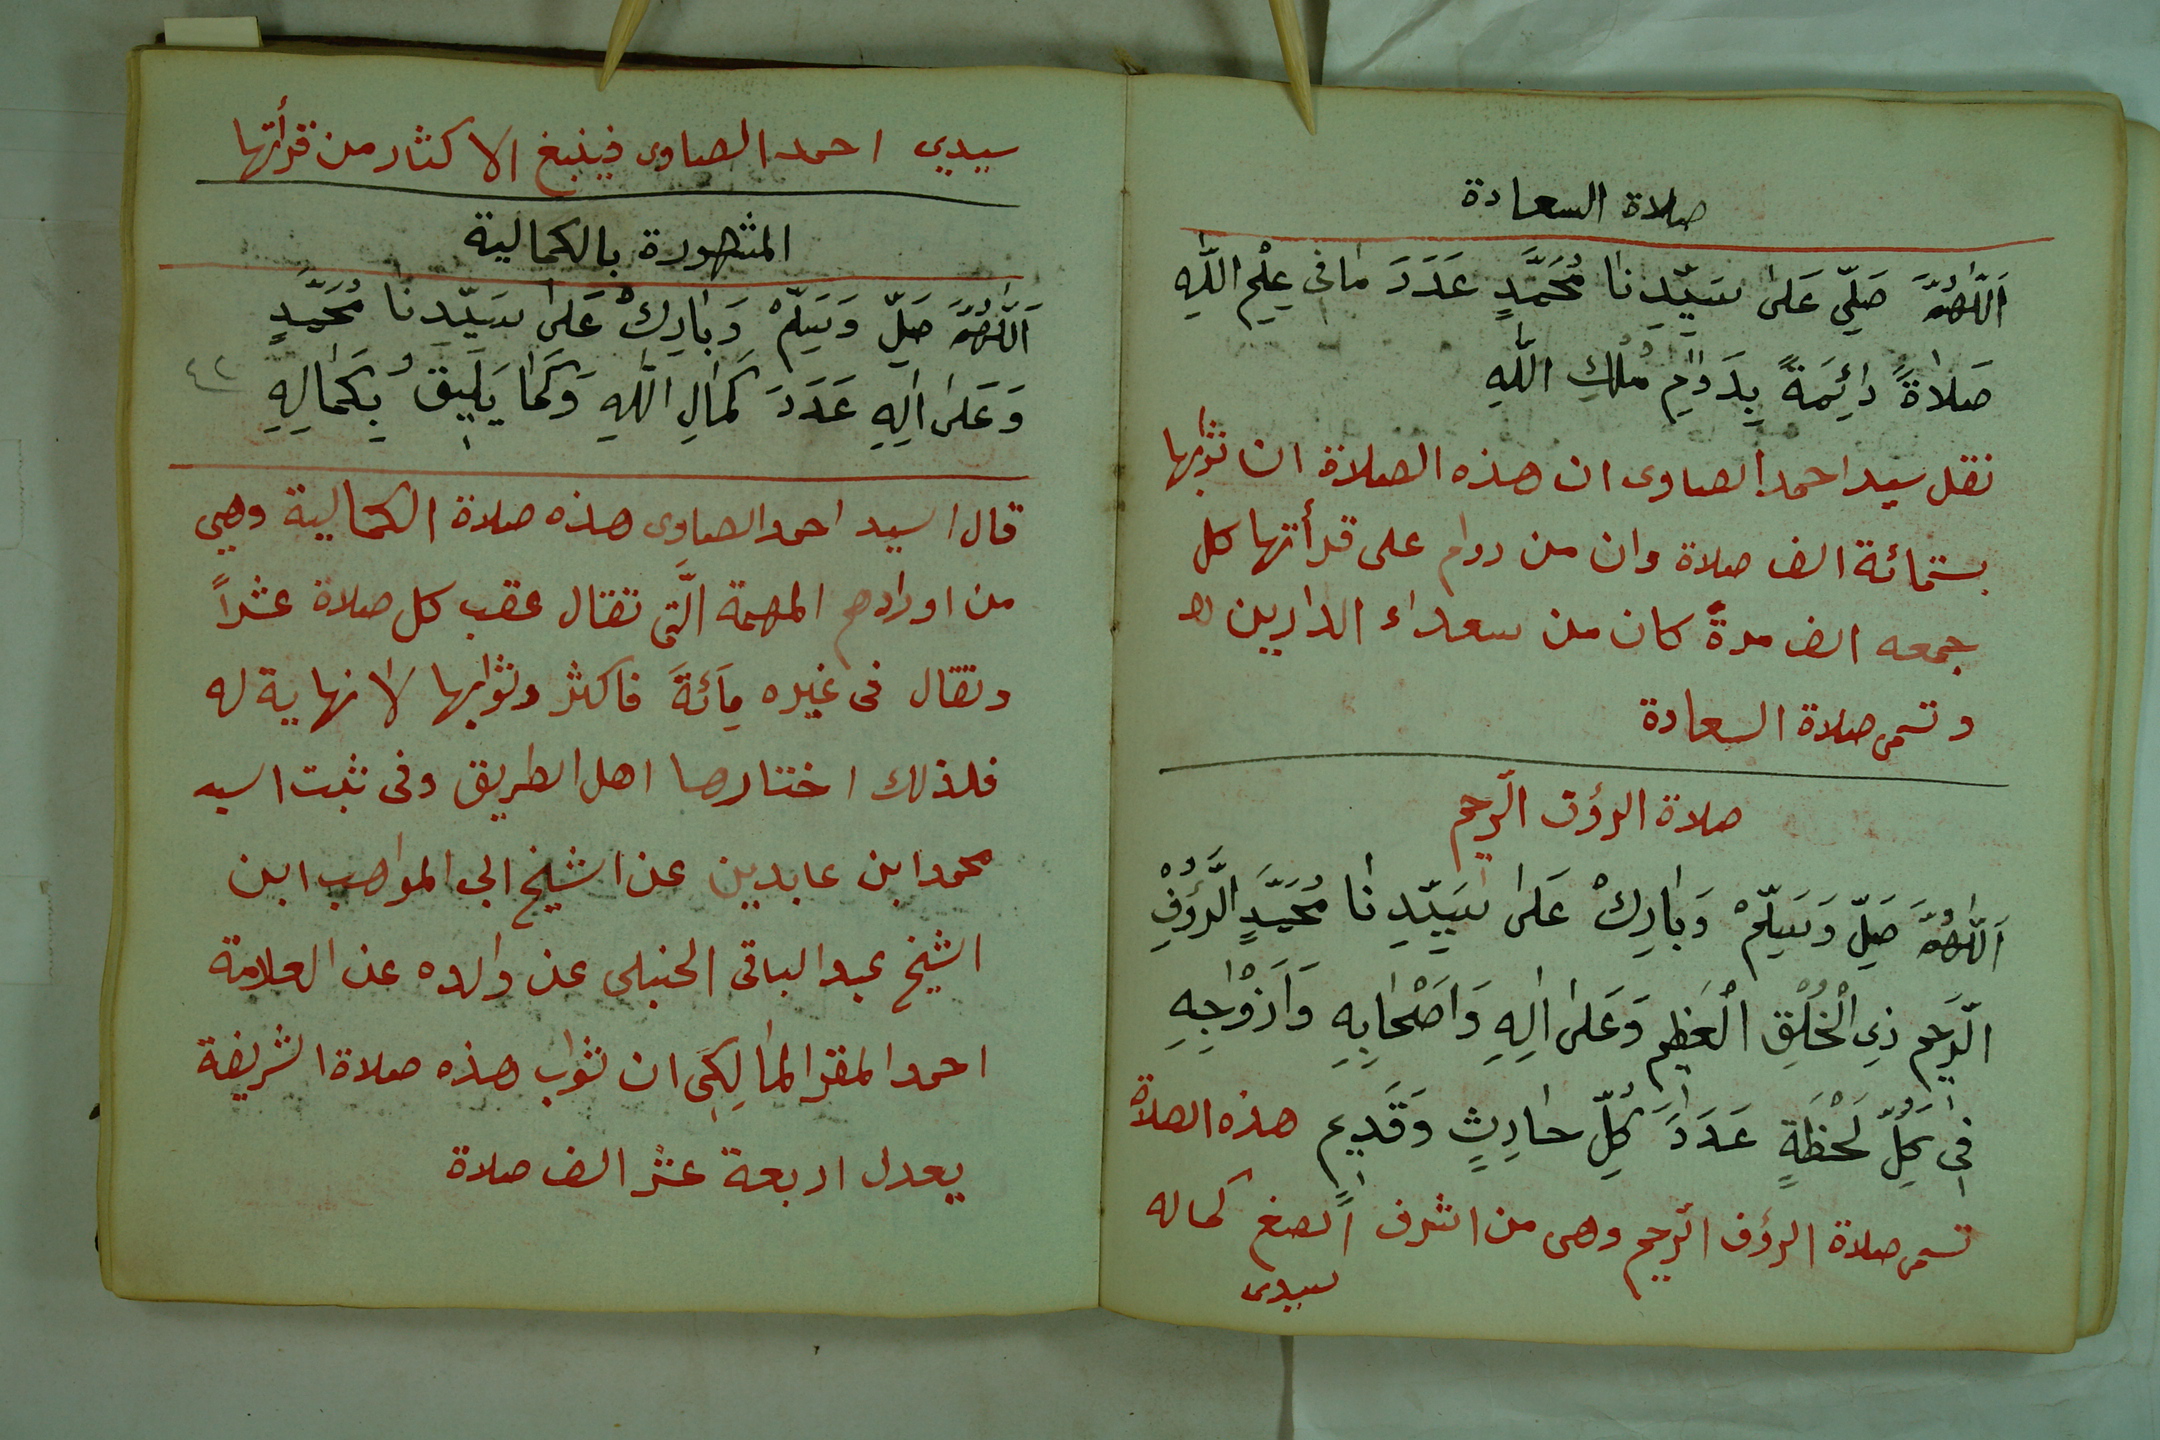 صلاة السعادة
اَللّٰهُمَّ صَلِّي عَلىٰ سَيِّدِنٰا مُحَمَّدٍ عَدَدَ مٰا فى عِلْمِ اللّٰهِ
صَلاٰةً دٰائِمَةً بِدَوٰامِ مُلْكِ اللّٰهِ
نقل سيد احمد الصاوى ان هذه الصلاة ان ثوٰبها
بستمائة الف صلاة وان من دوام على قرأتها كل
جمعه الف مرةً كان من سعداء الدارين اهـ
وتسمى صلاة السعادة
صلاة الرؤف الرّحيم
اَللّٰهُمَّ صَلِّ وَسَلِّمْ وَبٰارِكْ عَلىٰ سَيِّدِنٰا مُحَمَّدٍ الرَّؤُفْ
الرَّحيم ذِى الْخُلْقِ الْعَظيم وَعَلىٰ اٰلِهِ وَاَصْحٰابِهِ وَاَزْوٰاجِهِ
فِى كُلِّ لَحْظَةٍ عَدَدَ كُلِّ حٰادِثٍ وَقَديمٍ هذه الصلاة
تسمى صلاة الرؤف الرّحيم وهى من اشرف الصيغ كماله
سيدى
سيدي احمد الصاوى فينبغ الاكثار من قرأتها
المشهورة بالكمالية
اَللّٰهُمَّ صَلِّ وَسَلِّمْ وَبٰارِكْ عَلىٰ سَيِّدِنٰا مُحَمَّدٍ
وَعَلىٰ اٰلِهِ عَدَدَ كَمٰالِ اللّٰهِ وَكَمٰا يَليَقُ بِكَمٰالِهِ
٤٢
قال السيد احمد الصاوى هذه صلاة الكمالية وهي
من اورادهم المهمة الّتى تقال عقب كل صلاة عشراً
وتقال فى غيره مِأئَةَ فاكثر وثوٰبها لانهاية له
فلذلك اختارها اهل الطريق وفى ثبت السيد
محمد ابن عابدين عن الشيخ ابى المواهب ابن
الشيخ عبد الباقى الحنبلى عن والده عن العلامة
احمد المقر المٰالِكِى ان ثوٰب هذه صلاة الشريفة
يعدل اربعة عشر الف صلاة